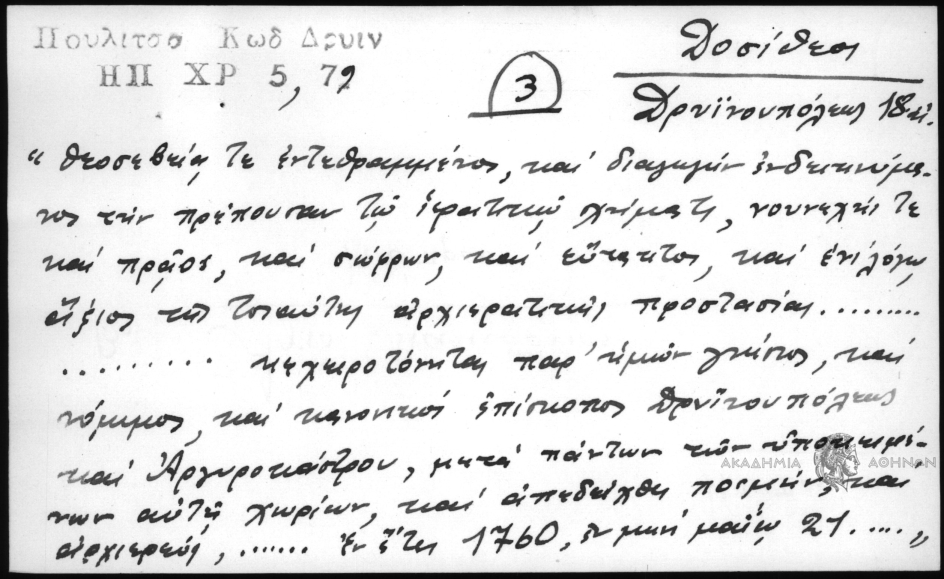 Πουλιτσα Κωδ Δρυιν
ΗΠ ΧΡ 5, 72
3
Δοσίθεος
Δρυϊνουπόλεως 18 αἰ.
“ θεοσεβείᾳ τε ἐντεθραμμένος, καί διαγωγήν ἐνδεικνύμε-
νος τήν πρέπουσαν τῷ ἱερατικῷ σχήματι, νουνεχής τε
καί πρᾷος, καί σώφρων, καί εὔτακτος, καί ἑνί λόγῳ
ἄξιος τῆς τοιαύτης ἀρχιερατικῆς προστασίας.........
......... κεχειροτόνηται παρ' ἡμῶν γνήσιος, καί
νόμιμος, καί κανονικός ἐπίσκοπος Δρυϊνουπόλεως
καί Ἀργυροκάστρου, μετά πάντων τῶν ὑποκειμέ-
νων αὐτῇ χωρίων, καί ἀπεδείχθη ποιμήν, καί
ἀρχιερεύς, ....... ἐν ἔτει 1760, ἐν μηνί μαΐῳ 21.....„
ΑΚΑΔΗΜΙΑ ΑΘΗΝΩΝ